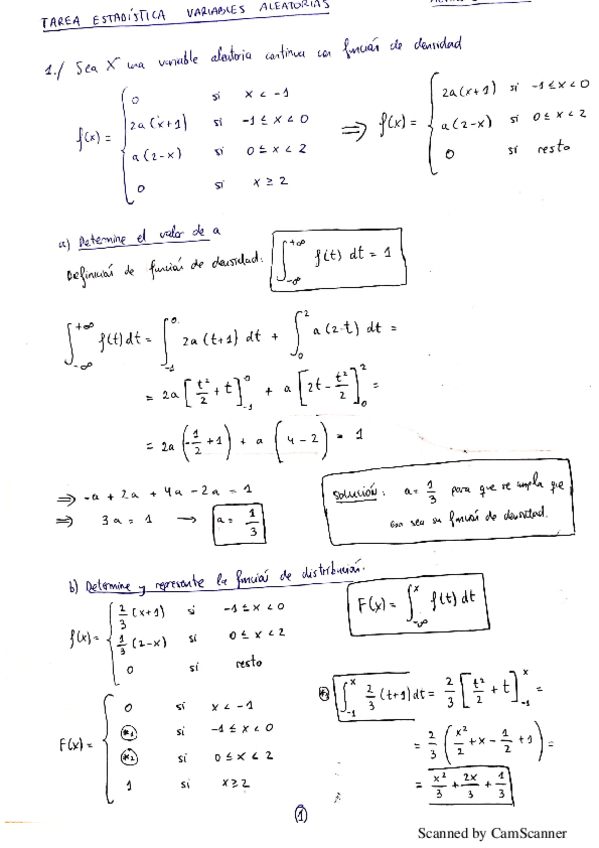 TAREA ESTADÍSTICA VARIABLES ALEATORIAS
1./ Sea X una variable aleatoria continua con función de densidad
f(x) = { 0 si x < -1
2a(x+1) si -1 ≤ x < 0
a(2-x) si 0 ≤ x < 2
0 si x ≥ 2
⇒ f(x) = { 2a(x+1) si -1 ≤ x < 0
a(2-x) si 0 ≤ x < 2
0 si resto
a) Determine el valor de a
Definición de función de densidad: ∫_{-∞}^{+∞} f(t) dt = 1
∫_{-∞}^{+∞} f(t) dt = ∫_{-1}^{0} 2a(t+1) dt + ∫_{0}^{2} a(2-t) dt =
= 2a [t²/2 + t]_{-1}^{0} + a [2t - t²/2]_{0}^{2} =
= 2a (-1/2 + 1) + a (4 - 2) = 1
⇒ -a + 2a + 4a - 2a = 1
⇒ 3a = 1 → a = 1/3
Solución: a = 1/3 para que se cumpla que
sea su función de densidad.
b) Determine y represente la función de distribución.
f(x) = { 2/3 (x+1) si -1 ≤ x < 0
1/3 (2-x) si 0 ≤ x < 2
0 si resto
F(x) = ∫_{-∞}^{x} f(t) dt
F(x) = { 0 si x < -1
*1 si -1 ≤ x < 0
*2 si 0 ≤ x < 2
1 si x ≥ 2
∫_{-1}^{x} 2/3 (t+1) dt = 2/3 [t²/2 + t]_{-1}^{x} =
= 2/3 (x²/2 + x - 1/2 + 1) =
= x²/3 + 2x/3 + 1/3
(1)
Scanned by CamScanner